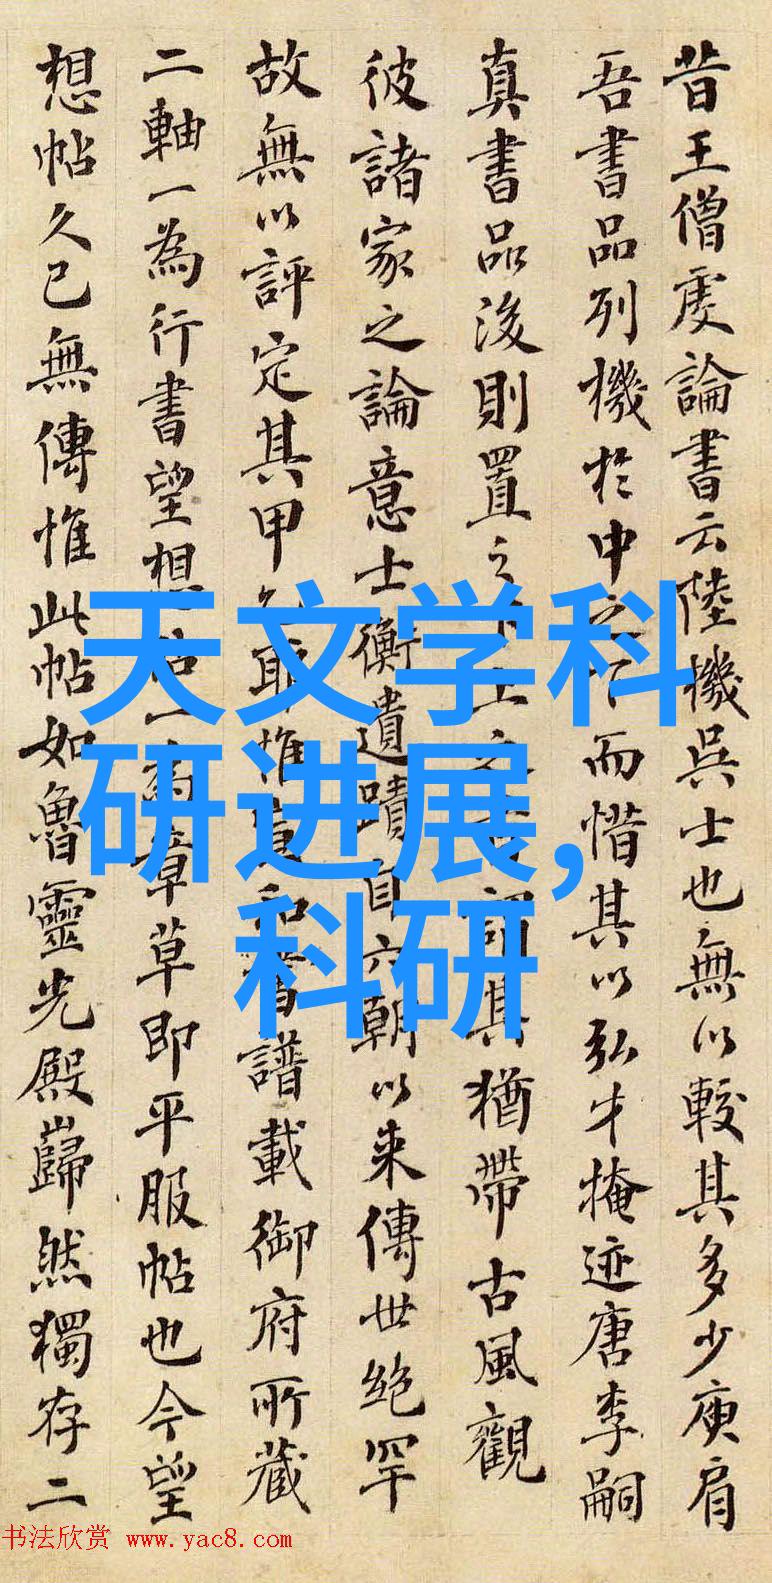 昔王僧虔論書云陸機吳士也無以較其多少庾肩
吾書品列機於中之下而惜其以弘才掩迹唐李嗣
真書品後則置之下上之
謂其猶帶古風觀
彼諸家之論意士衡遺蹟自六朝以来傳世絶罕
故無以評定其甲乙耶惟宣和書譜載御府所藏
二軸一為行書望想帖一為章草即平服帖也今望
想帖久已無傳惟此帖如魯靈光殿巋然獨存二
天文学科
研进展,
科研
书法欣赏 www.yac8.com